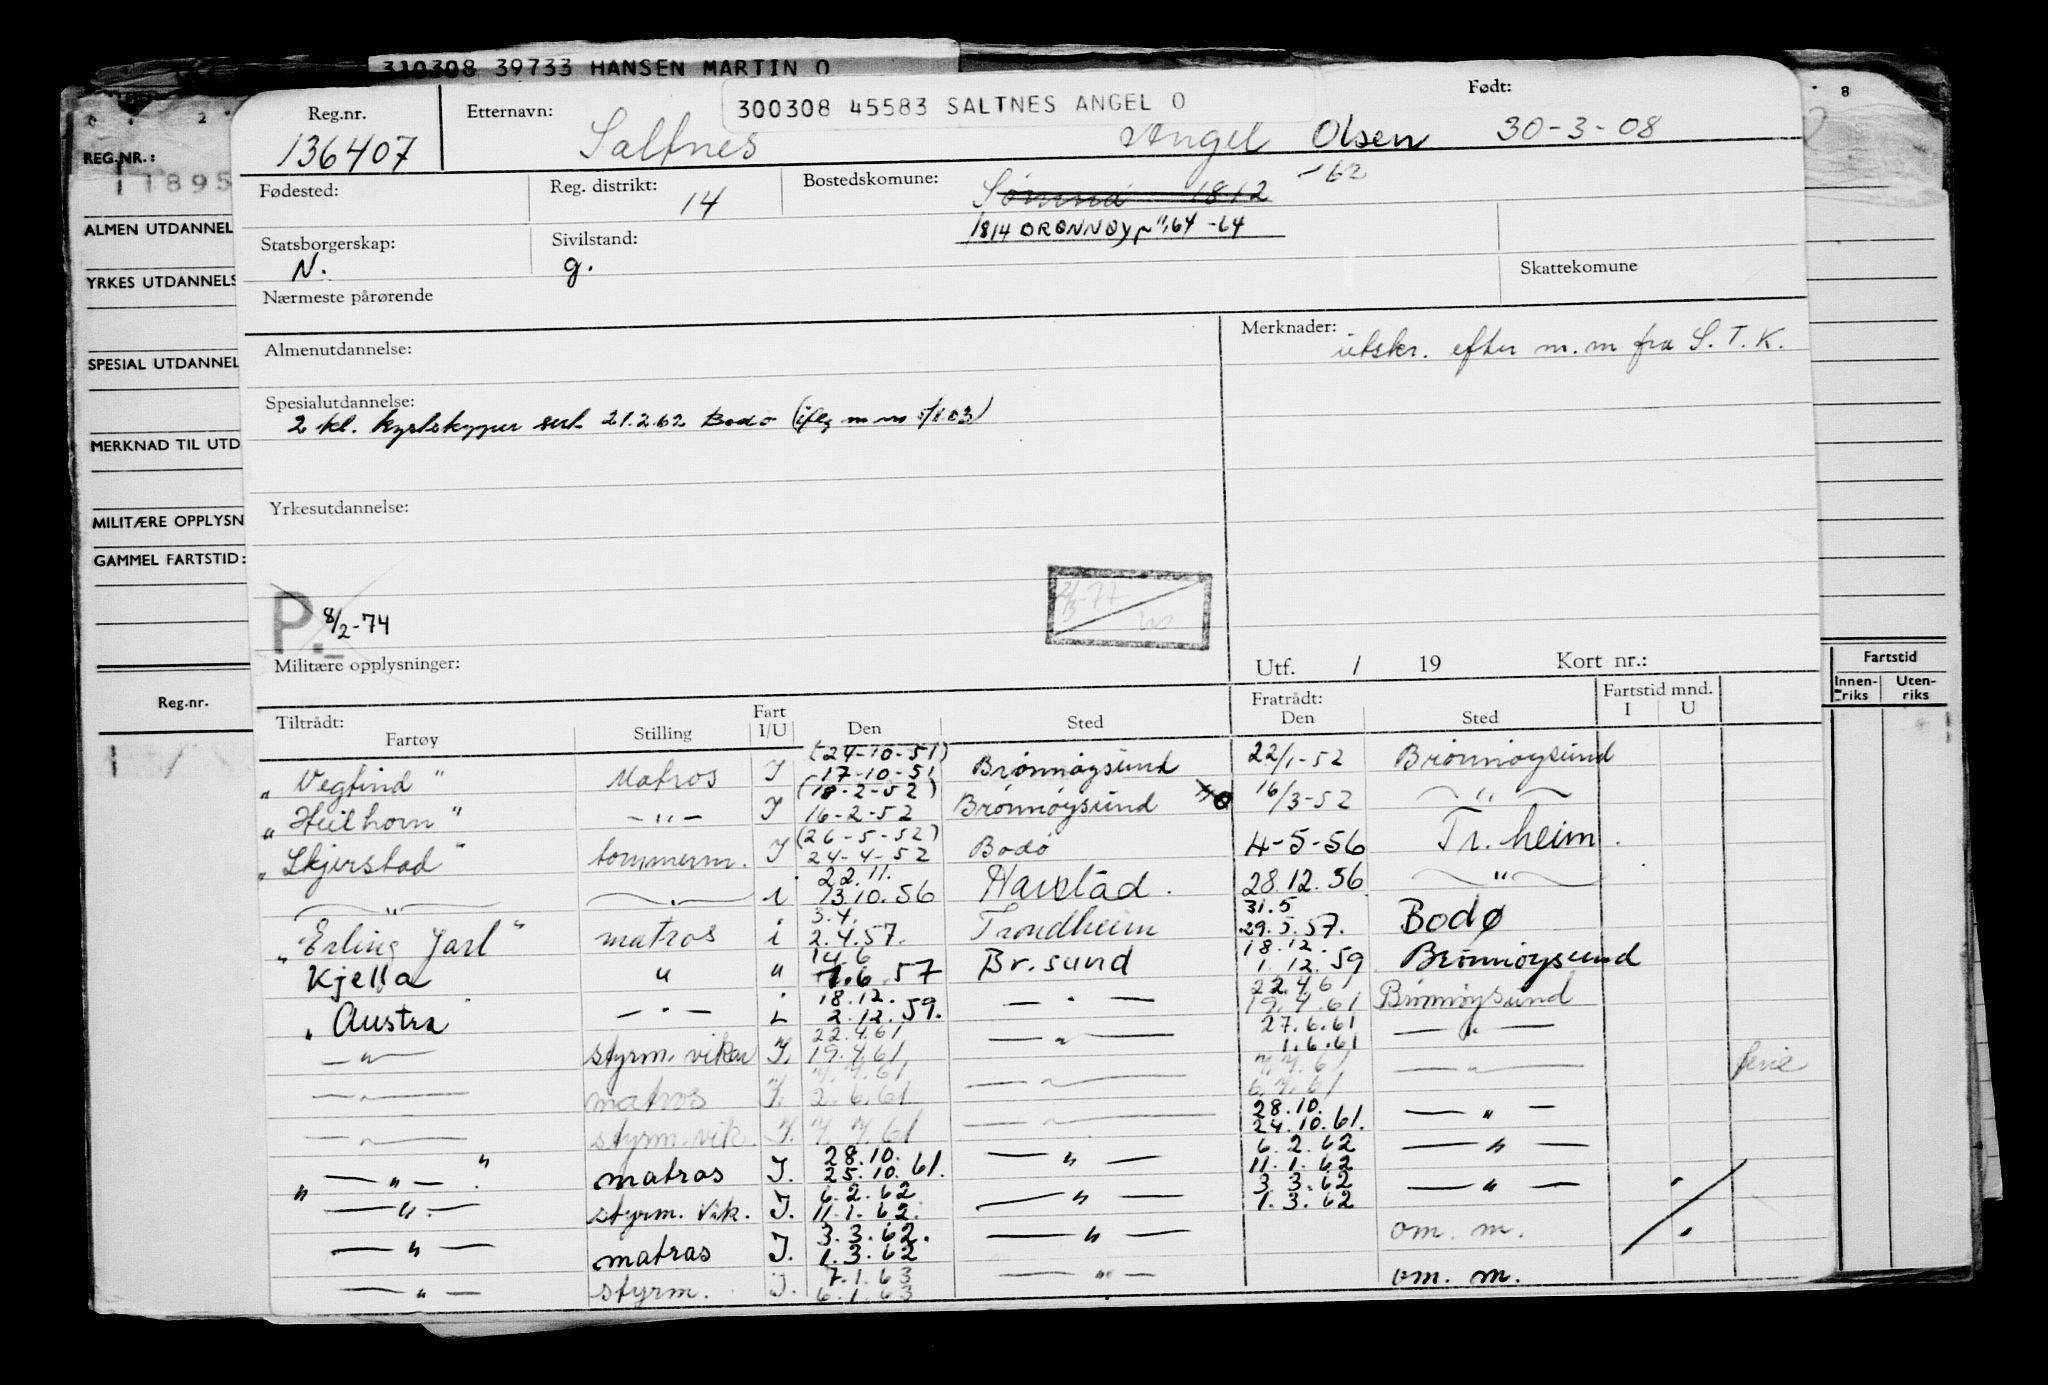 310308 39733 HANSEN MARTIN O
300308 45583 SALTNES ANGEL O
Reg.nr. Etternavn: Født:
136407 Saltnes Angel Olsen 30-3-08
REG.NR.:
11895
Fødested: Reg. distrikt: 14 Bostedskomune: Sømna 1812 -62
1814 BRØNNØY 64 -64
ALMEN UTDANNEL
Statsborgerskap: N. Sivilstand: g. Skattekomune
YRKES UTDANNELS
Nærmeste pårørende
Almenutdannelse: Merknader: utskr. efter m.m fra S.T.K.
SPESIAL UTDANNEL
Spesialutdannelse:
2 kl. kystskypper sert 21.2.62 Bodø (iflg m m
MERKNAD TIL UTD
Yrkesutdannelse:
MILITÆRE OPPLYSN
GAMMEL FARTSTID:
P. 8/2-74
Militære opplysninger: Utf. / 19 Kort nr.:
Fartstid
Innen-riks Uten-riks
Reg.nr.
Tiltrådt: Fart Fratrådt: Fartstid mnd.
Fartøy Stilling I/U Den Sted Den Sted I U
(24-10-51)
"Vegtind" Matros I 17-10-51 Brønnøysund 22/1-52 Brønnøysund
(18-2-52)
"Heilhorn" -"- I 16-2-52 Brønnøysund 16/3-52 -"-
(26-5-52)
"Skjerstad" tømmerm. I 24-4-52 Bodø 4-5-56 Tr.heim.
22.11.
-"- -"- i 13.10.56 Harstad. 28.12.56 -"-
3.4. 31.5
"Erling Jarl" matros i 2.4.57. Trondheim 29.5.57. Bodø
14.6 18.12.
Kjella " " 1.6.57 Br.sund 1.12.59 Brønnøysund
18.12. 22.4.61
"Austra -"- i 2.12.59. -"- 19.4.61 Brønnøysund
22.4.61 27.6.61
-"- styrm. vikar I. 19.4.61 -"- 1.6.61 -"-
7.7.61 7.7.61
-"- matros I. 2.6.61 -"- 6.7.61 -"- ferie
28.10.
-"- styrm. vik. I. 7.7.61 -"- 24.10.61. -"-
28.10. 6.2.62
"-"-" matros I. 25.10.61. -"- 11.1.62 -"-
6.2.62 3.3.62
-"- styrm. Vik. I. 11.1.62. -"- 1.3.62 -"-
3.3.62.
-"- matros I. 1.3.62 -"- om. m.
7.1.63
-"- styrm. I. 6.1.63 -"- om. m.